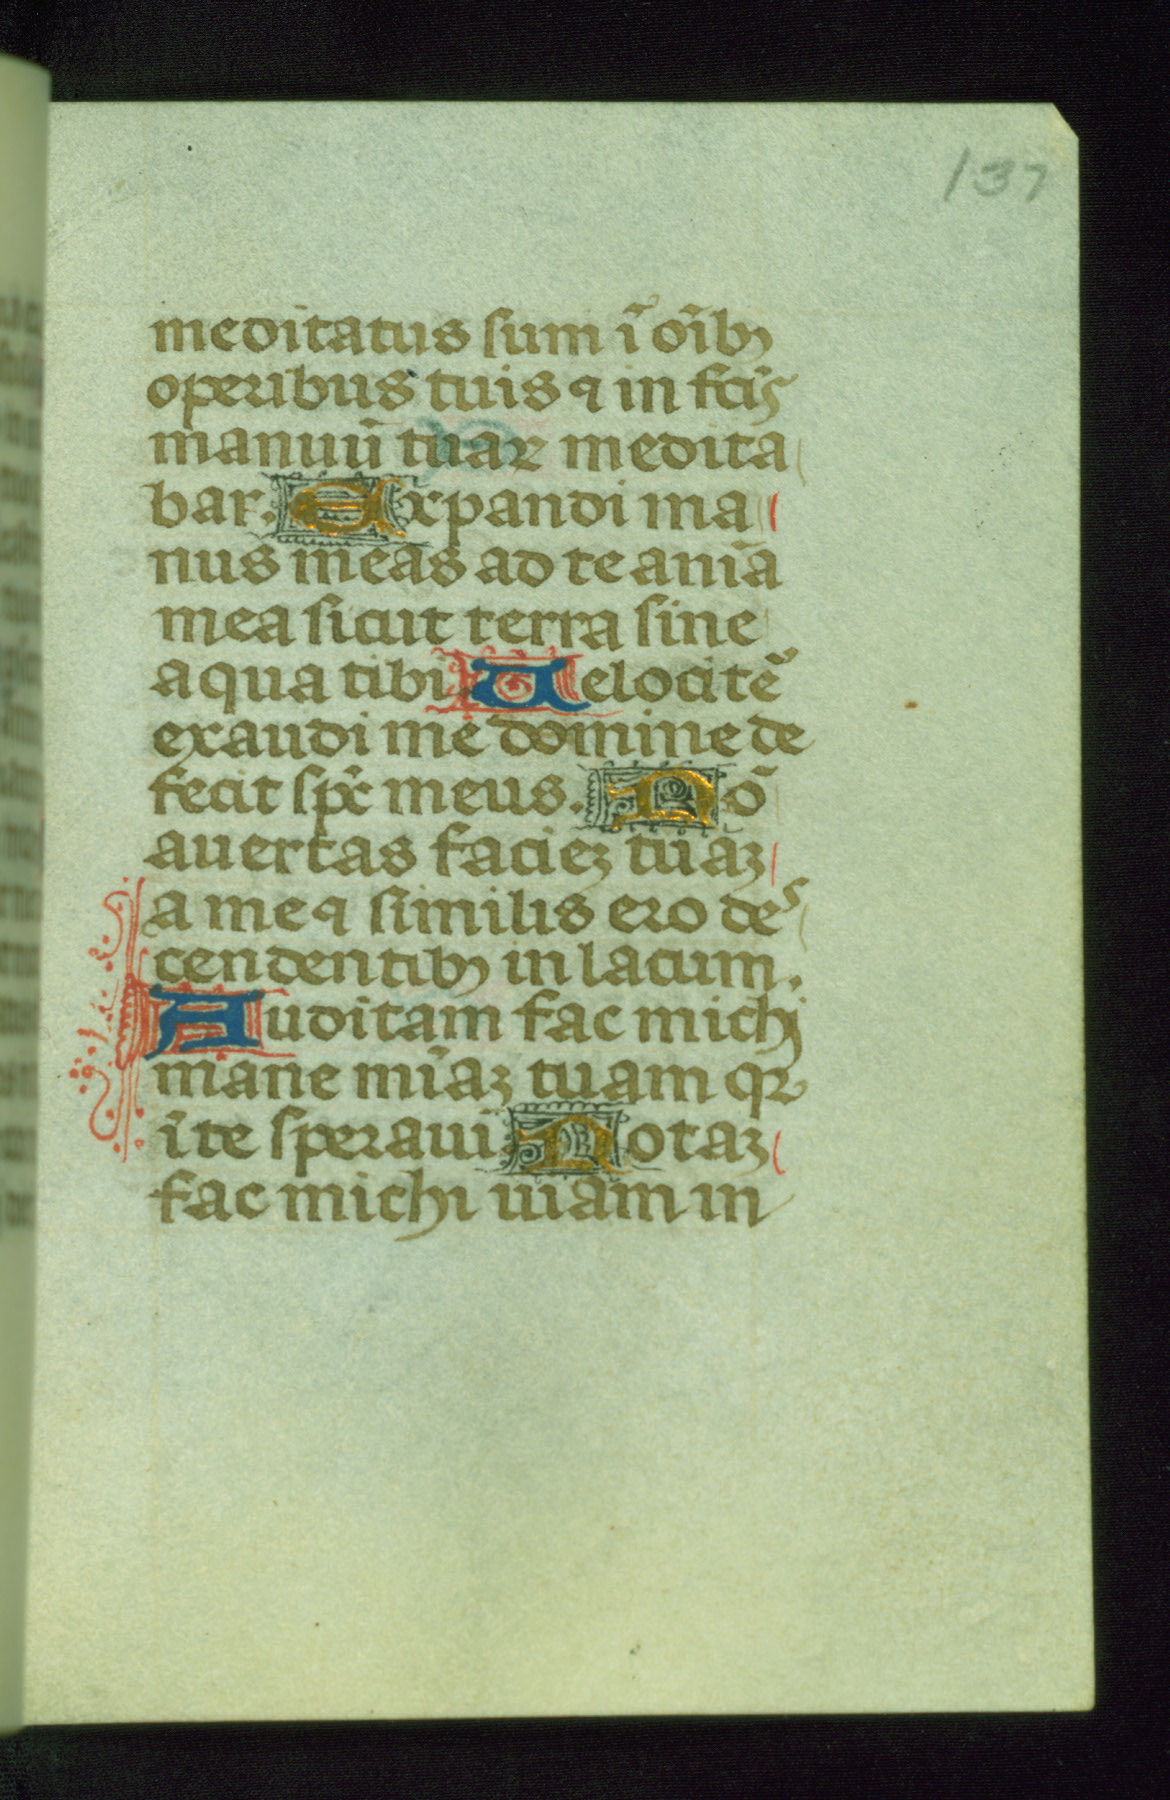 137
meditatus sum ĩ oĩbꝰ
operibus tuis ⁊ in fc̃is
manuũ tuaꝝ medita
bar. Expandi ma
nus meas ad te anĩa
mea sicut terra sine
aqua tibi. Uelocitẽ
exaudi me domine de
fecit sp̃c meus. Nõ
auertas facieꝫ tuaꝫ
a me ⁊ similis ero des
cendentibꝰ in lacum.
Auditam fac michi
mane mĩaꝫ tuam qꝛ
ĩ te speraui. Notaꝫ
fac michi uiam in